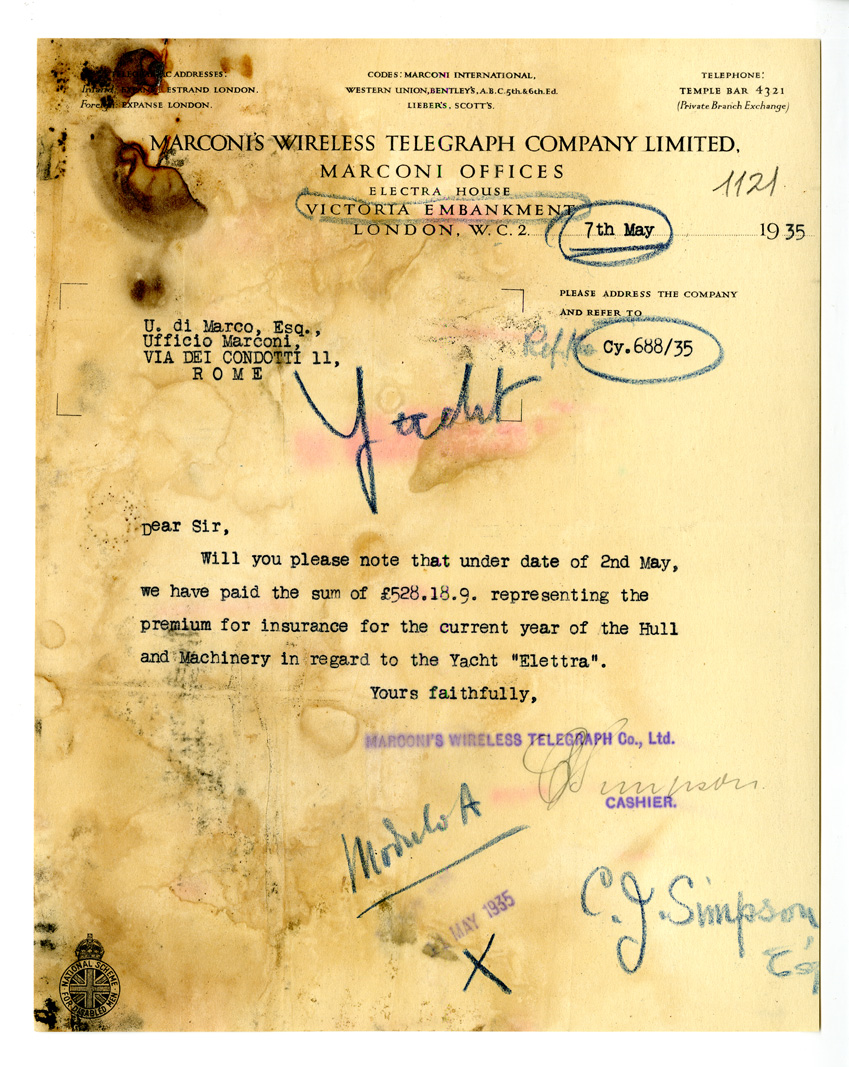 TELEGRAPHIC ADDRESSES:
Inland: EXPANSE, ESTRAND LONDON.
Foreign: EXPANSE LONDON.
CODES: MARCONI INTERNATIONAL,
WESTERN UNION, BENTLEY'S, A.B.C. 5th. & 6th. Ed.
LIEBER'S, SCOTT'S.
TELEPHONE:
TEMPLE BAR 4321
(Private Branch Exchange)
MARCONI'S WIRELESS TELEGRAPH COMPANY LIMITED,
MARCONI OFFICES
ELECTRA HOUSE
VICTORIA EMBANKMENT
LONDON, W.C.2.
1121
7th May 1935
PLEASE ADDRESS THE COMPANY
AND REFER TO
Ref. No Cy.688/35
U. di Marco, Esq.,
Ufficio Marconi,
VIA DEI CONDOTTI 11,
R O M E
Yacht
Dear Sir,
Will you please note that under date of 2nd May,
we have paid the sum of £528.18.9. representing the
premium for insurance for the current year of the Hull
and Machinery in regard to the Yacht "Elettra".
Yours faithfully,
MARCONI'S WIRELESS TELEGRAPH Co., Ltd.
CJSimpson.
CASHIER.
Modulo A
MAY 1935
X
C. J. Simpson
Esq
NATIONAL SCHEME
FOR DISABLED MEN